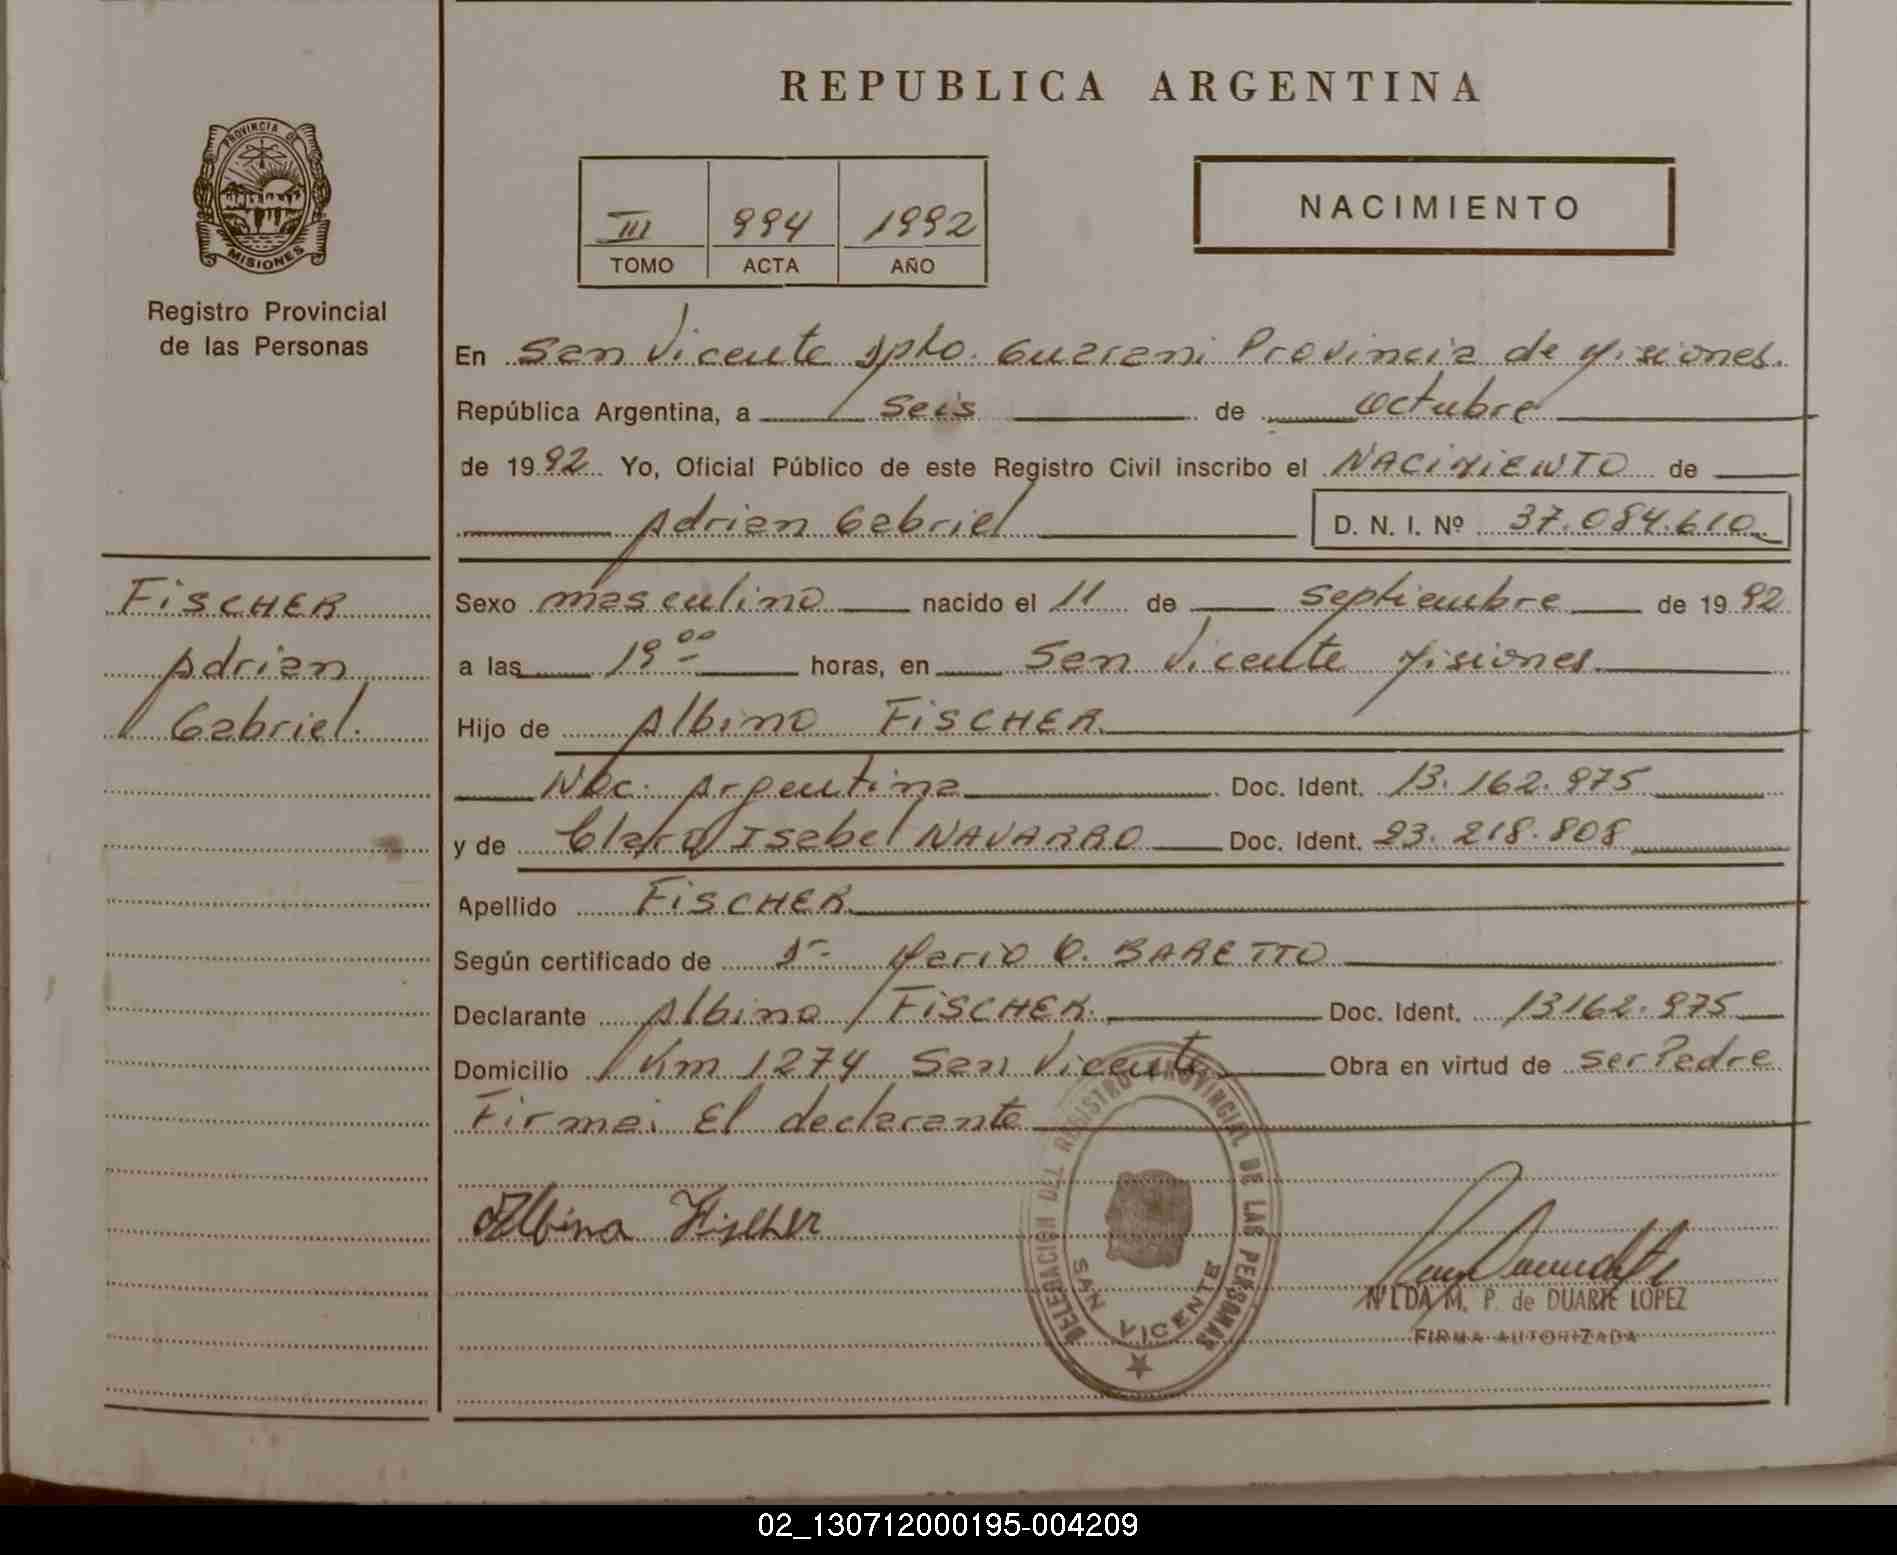 REPUBLICA ARGENTINA
PROVINCIA DE
MISIONES
Registro Provincial
de las Personas
NACIMIENTO
III 994 1992
TOMO ACTA AÑO
En San Vicente Dpto. Guarani Provincia de Misiones.
República Argentina, a Seis de octubre
de 1992 Yo, Oficial Público de este Registro Civil inscribo el NACIMIENTO de
Adrian Gabriel D. N. I. Nº 37.084.610
FISCHER
Adrian
Gabriel.
Sexo masculino nacido el 11 de septiembre de 1992
a las 19 00 horas, en San Vicente Misiones
Hijo de Albino FISCHER
Nac. Argentina Doc. Ident. 13.162.975
y de Clara Isabel NAVARRO Doc. Ident. 23.218.808
Apellido FISCHER
Según certificado de Dr. Mario O. BARETTO
Declarante Albino FISCHER. Doc. Ident. 13162.975
Domicilio Km 1274 San Vicente Obra en virtud de ser Padre
Firma: El declarante
Albino Fischer
DELEGACION DEL REGISTRO PROVINCIAL DE LAS PERSONAS
SAN VICENTE
NILDA M. P. de DUARTE LOPEZ
FIRMA AUTORIZADA
02_130712000195-004209